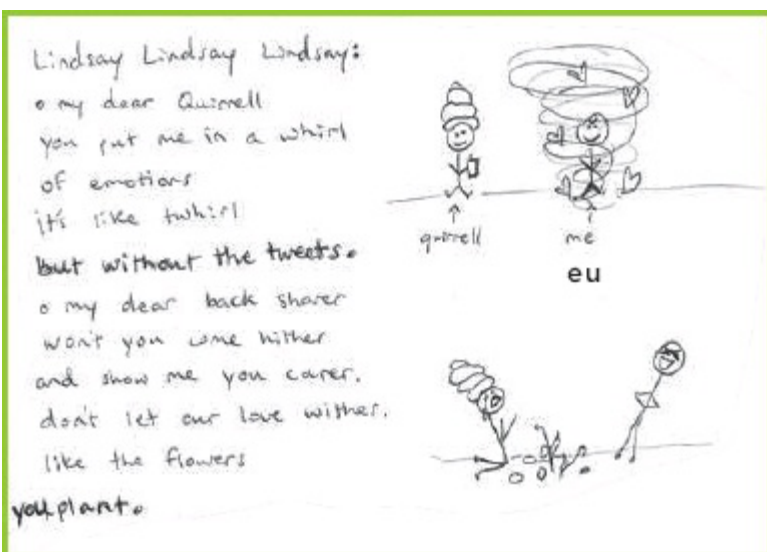 Lindsay Lindsay Lindsay:
o my dear Quirrell
you put me in a whirl
of emotions
it's like twhirl
but without the tweets.
o my dear back sharer
won't you come hither
and show me you carer.
don't let our love wither.
like the flowers
you plant.
quirrell
me
eu